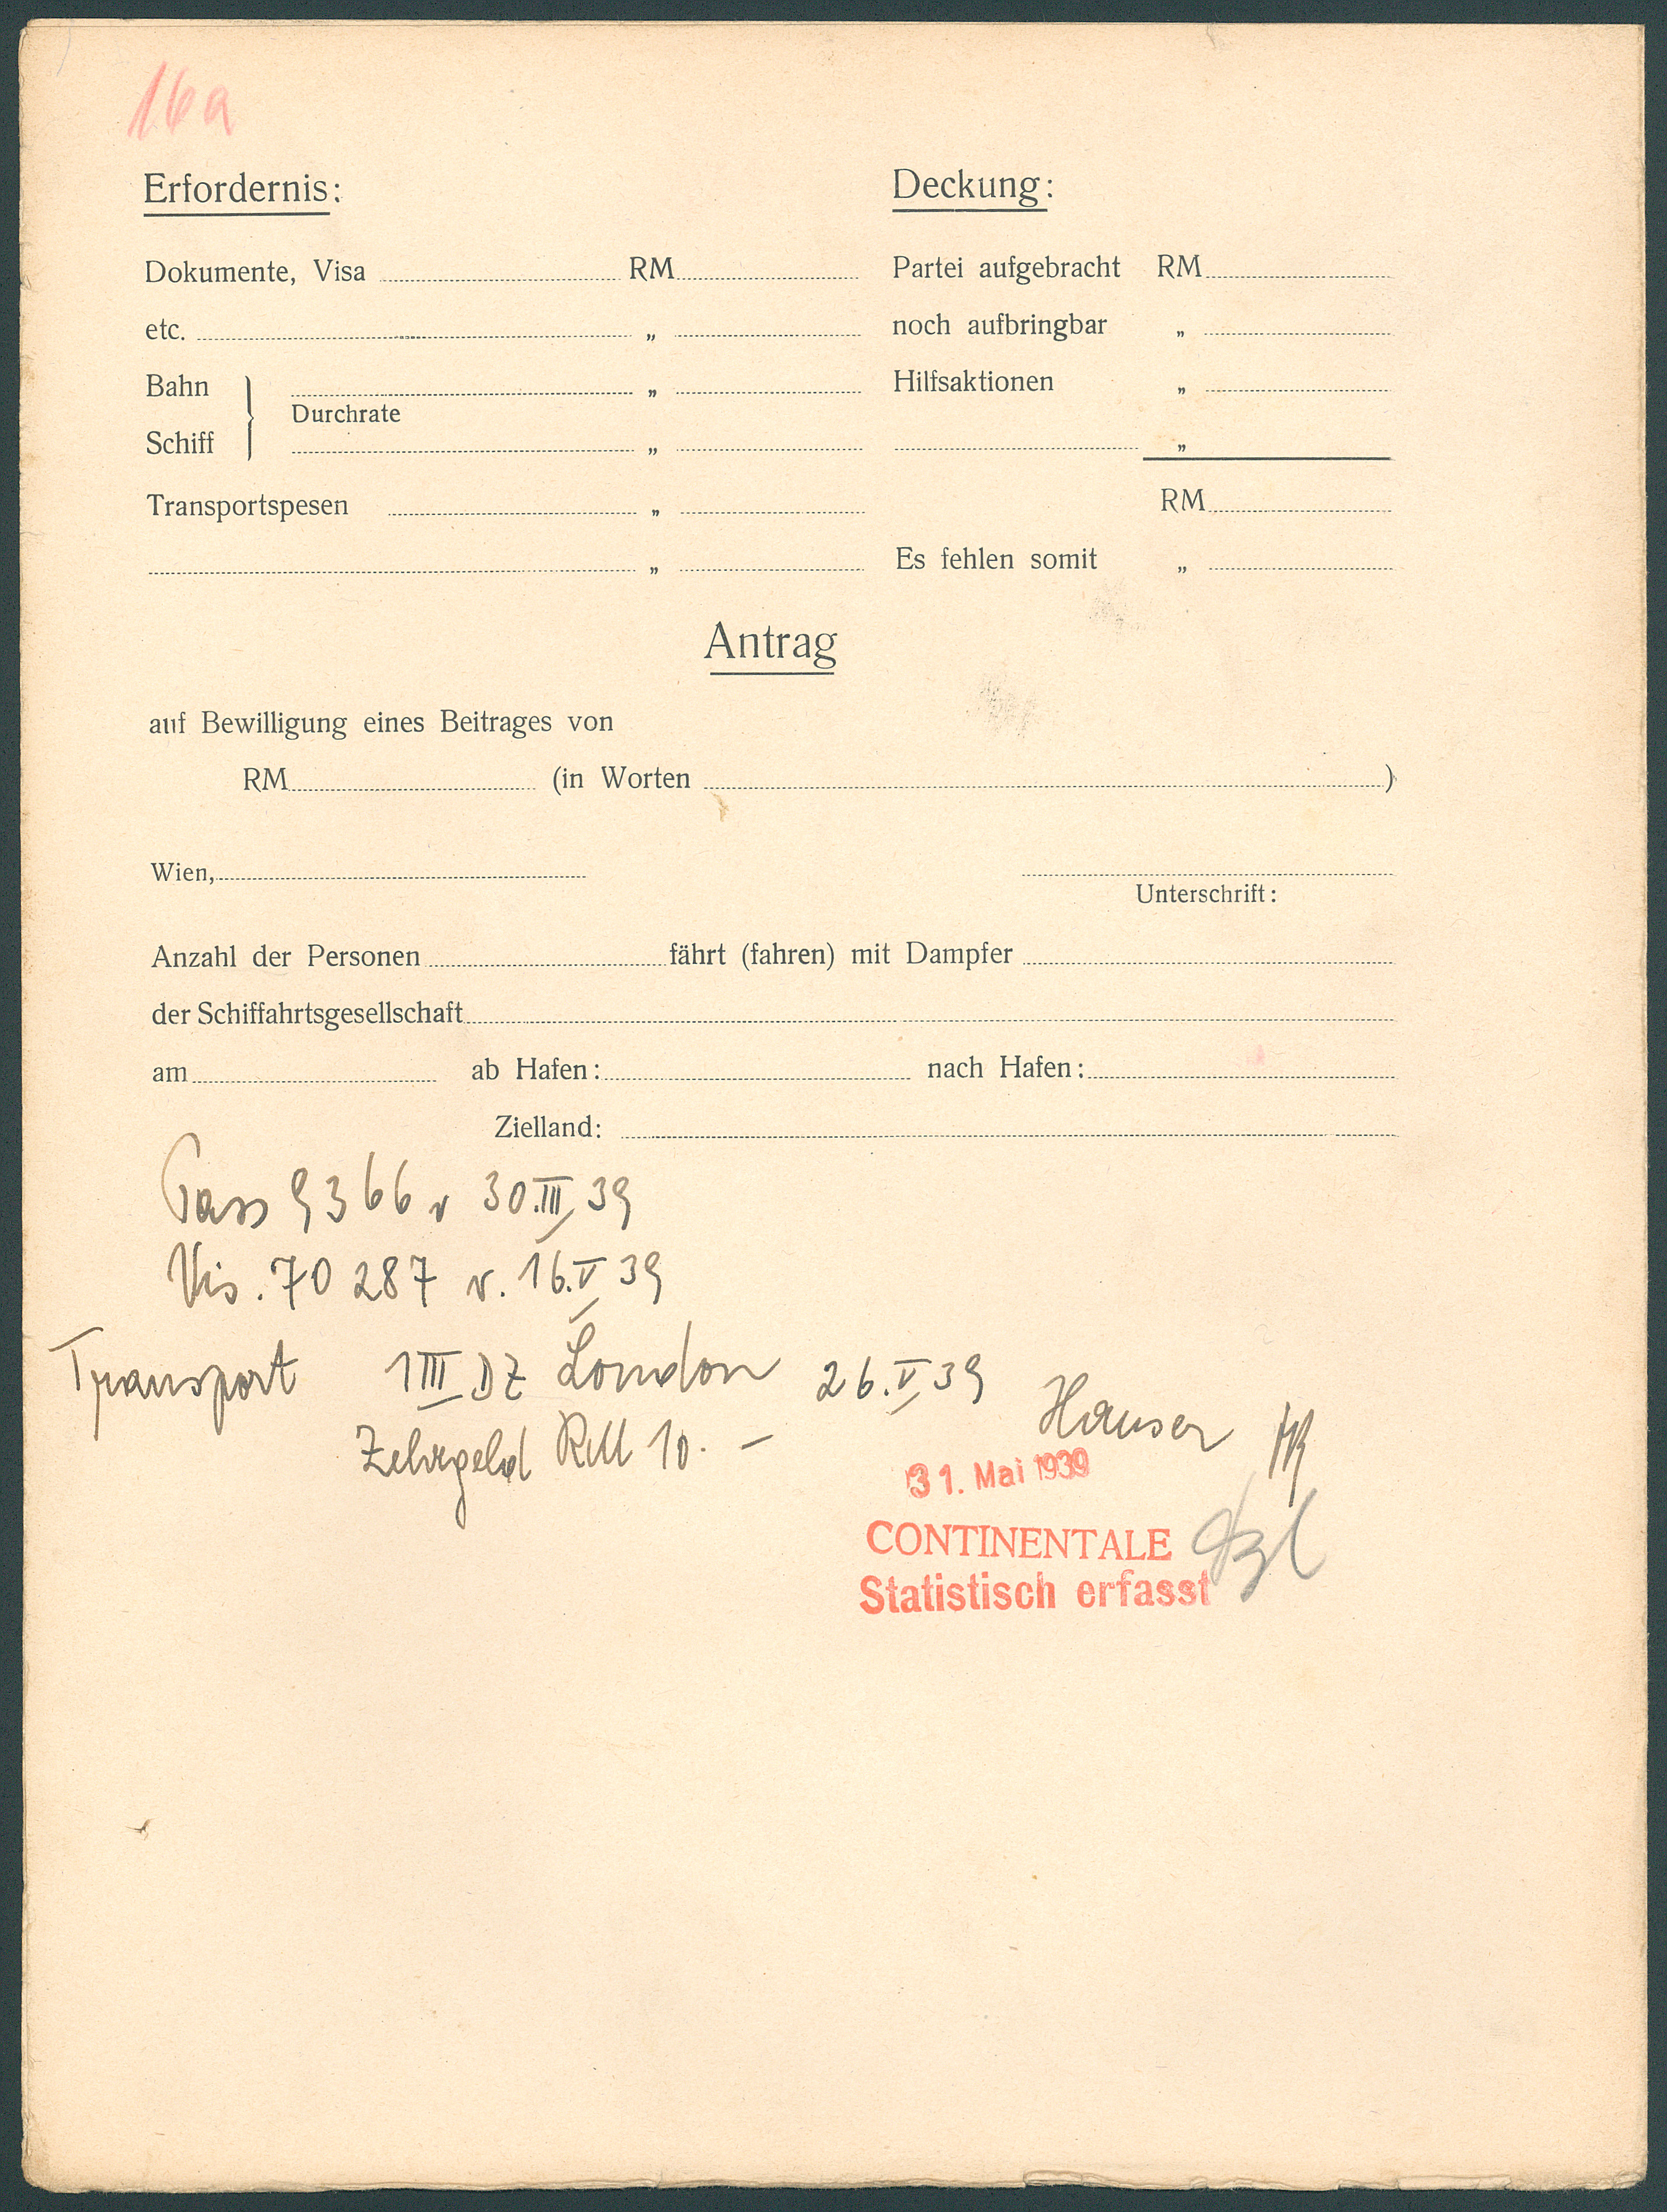 16a
Erfordernis:
Dokumente, Visa RM
etc. „
Bahn „
Durchrate
Schiff „
Transportspesen „
„
Deckung:
Partei aufgebracht RM
noch aufbringbar „
Hilfsaktionen „
„
RM
Es fehlen somit „
Antrag
auf Bewilligung eines Beitrages von
RM (in Worten )
Wien,
Unterschrift:
Anzahl der Personen fährt (fahren) mit Dampfer
der Schiffahrtsgesellschaft
am ab Hafen: nach Hafen:
Zielland:
Pass 9366 v 30.III 39
Vis. 70 287 v. 16.V 39
Transport 1 III DZ London 26.V 39 Hauser
Zehrgeld RM 10.-
31. Mai 1939
CONTINENTALE
Statistisch erfasst